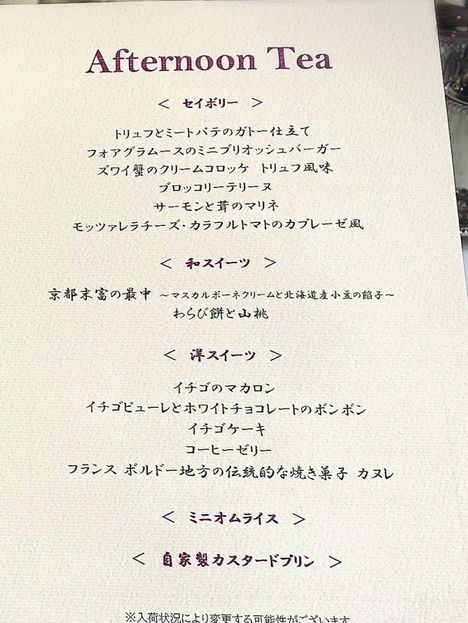 Afternoon Tea
< セイボリー >
トリュフとミートパテのガトー仕立て
フォアグラムースのミニブリオッシュバーガー
ズワイ蟹のクリームコロッケ トリュフ風味
ブロッコリーテリーヌ
サーモンと茸のマリネ
モッツァレラチーズ・カラフルトマトのカプレーゼ風
< 和スイーツ >
京都末富の最中 ～マスカルポーネクリームと北海道産小豆の餡子～
わらび餅と山桃
< 洋スイーツ >
イチゴのマカロン
イチゴピューレとホワイトチョコレートのボンボン
イチゴケーキ
コーヒーゼリー
フランス ボルドー地方の伝統的な焼き菓子 カヌレ
< ミニオムライス >
< 自家製カスタードプリン >
※入荷状況により変更する可能性がございます